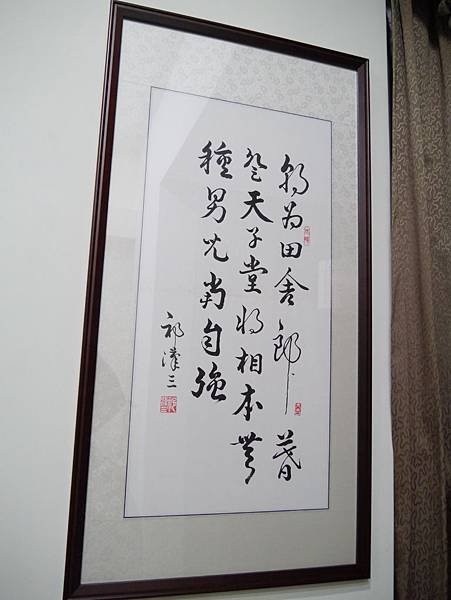 朝為田舍郎暮
登天子堂將相本無
種男兒當自強
祁漢三